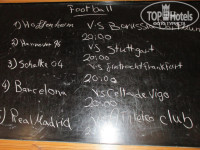 Football
TOP HOTELS
1) Hoffenheim V:S Borussia
20:00
2) Hannover 96 V:S Stuttgart
20:00
3) Schalke 04 V:S Eintracht Frankfurt
20:00
4) Barcelona V:S Celta de Vigo
20:00
5) Real Madrid V:S club